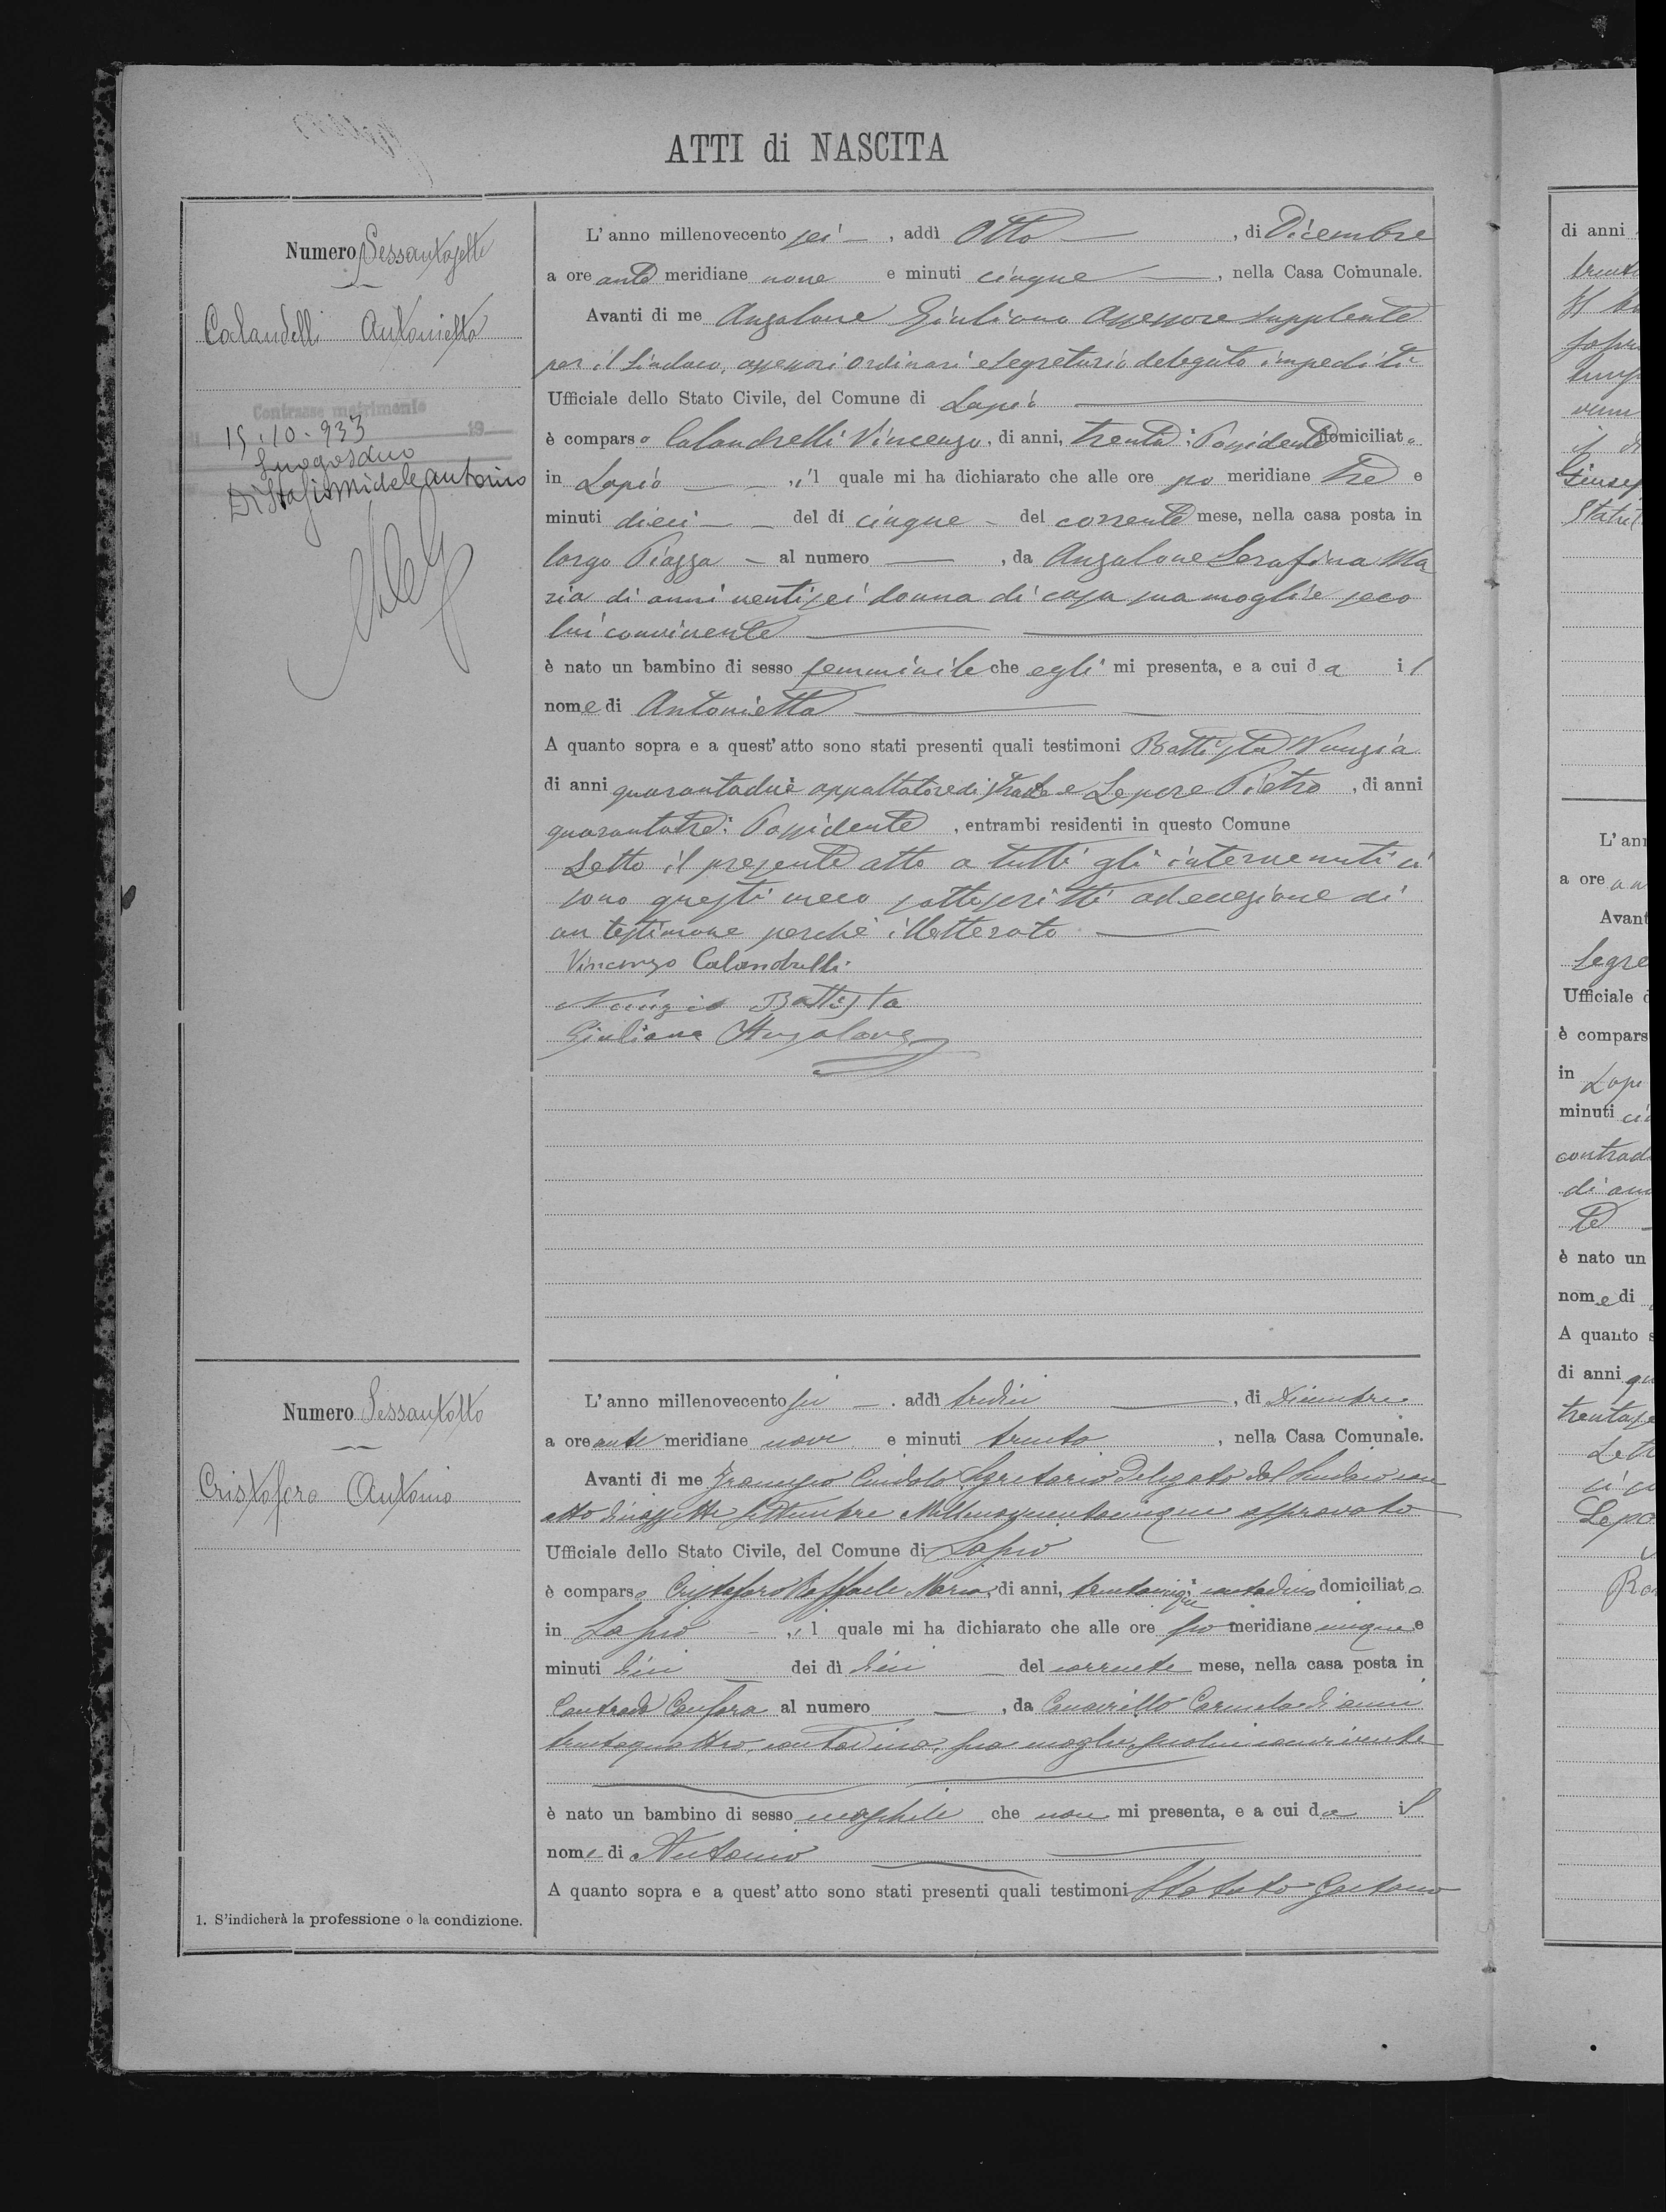 ATTI di NASCITA
Numero Sessantasette
Calandrelli Antonietta
Contrasse matrimonio
15.10.933 19
Luogosano
Di Stasio Michele Antonio
L'anno millenovecento sei, addì Otto, di Dicembre
a ore ante meridiane nove e minuti cinque, nella Casa Comunale.
Avanti di me Anzalone Giuliano Assessore supplente
per il Sindaco, assessori ordinari e segretario delegato impediti
Ufficiale dello Stato Civile, del Comune di Lapio
è comparso Calandrelli Vincenzo, di anni, trenta: Possidente domiciliato
in Lapio, il quale mi ha dichiarato che alle ore po meridiane tre e
minuti dieci del dì cinque del corrente mese, nella casa posta in
largo Piazza al numero, da Anzalone Serafina Ma
ria di anni ventisei donna di casa sua moglie seco
lui convivente
è nato un bambino di sesso femminile che egli mi presenta, e a cui da il
nome di Antonietta
A quanto sopra e a quest'atto sono stati presenti quali testimoni Battista Nunzio
di anni quarantadue appaltatore di strade e Lepore Pietro, di anni
quarantatre: Possidente, entrambi residenti in questo Comune
Letto il presente atto a tutti gli intervenuti si
sono questi meco sottoscritti ad eccezione di
un testimone perchè illetterato
Vincenzo Calandrelli
Nunzio Battista
Giuliano Anzalone
Numero Sessantotto
Cristofaro Antonio
L'anno millenovecento sei, addì tredici, di Dicembre
a ore ante meridiane nove e minuti trenta, nella Casa Comunale.
Avanti di me Segretario Delegato dal Sindaco con
atto diciassette Settembre Millenovecentocinque approvato
Ufficiale dello Stato Civile, del Comune di Lapio
è comparso Cristofaro Raffaele Maria, di anni, trentacinque contadino domiciliato
in Lapio, il quale mi ha dichiarato che alle ore po meridiane cinque e
minuti dieci dei dì dieci del corrente mese, nella casa posta in
Contrada Canfora al numero, da Carmela di anni
trentaquattro, contadina, sua moglie, seco lui convivente
è nato un bambino di sesso maschile che non mi presenta, e a cui da il
nome di Antonio
A quanto sopra e a quest'atto sono stati presenti quali testimoni Statuto Gaetano
1. S'indicherà la professione o la condizione.
di anni
L'an
a ore
Avant
Segre
Ufficiale
è compars
in Lapi
minuti
contrad
di ann
è nato un
nome di
A quanto s
di anni